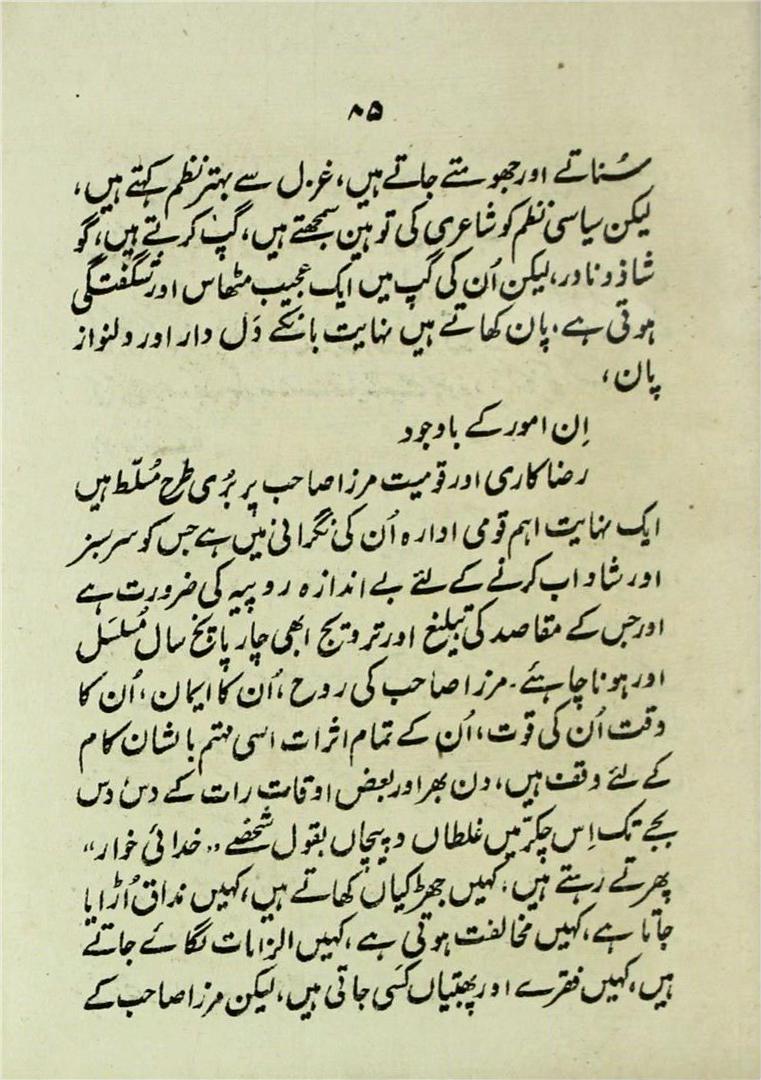 ۸۵
سُناتے اور جھومتے جاتے ہیں، غزل سے بہتر نظم کہتے ہیں،
لیکن سیاسی نظم کو شاعری کی توہین سمجھتے ہیں، گپ کرتے ہیں، گو
شاذ و نادر، لیکن اُن کی گپ میں ایک عجیب مٹھاس اور شگفتگی
ہوتی ہے. پان کھاتے ہیں نہایت بانکے دَل دار اور دلنواز
پان،
اِن امور کے باوجود
رضا کاری اور قومیت مرزا صاحب پر بُری طرح مُسلّط ہیں
ایک نہایت اہم قومی ادارہ اُن کی نگرانی میں ہے جس کو سرسبز
اور شاداب کرنے کے لئے بے اندازہ روپیہ کی ضرورت ہے
اور جس کے مقاصد کی تبلیغ اور ترویج ابھی چار پانچ سال مُسلسَل
اور ہونا چاہئے۔ مرزا صاحب کی روح، اُن کا ایمان، اُن کا
وقت اُن کی قوت، اُن کے تمام اثرات اسی مہتم بالشان کام
کے لئے وقف ہیں، دن بھر اور بعض اوقات رات کے دس دس
بجے تک اِس چکّر میں غلطاں و پیچاں بقول شخصے ،، خدائی خوار،،
پھرتے رہتے ہیں، کہیں جھڑکیاں کھاتے ہیں، کہیں مذاق اُڑایا
جاتا ہے، کہیں مخالفت ہوتی ہے، کہیں الزامات لگائے جاتے
ہیں، کہیں فقرے اور پھبتیاں کَسی جاتی ہیں، لیکن مرزا صاحب کے